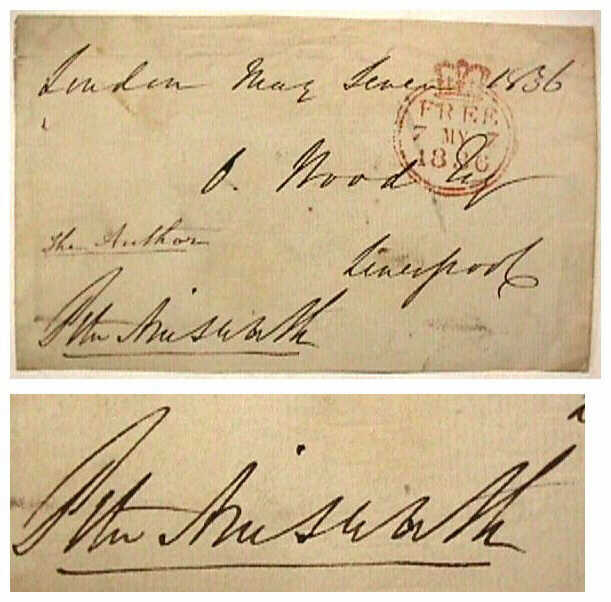 London May Seven 1836
FREE
7 MY 7
1836
O. Wood Esq
The Author
Liverpool
Peter Ainsworth
Peter Ainsworth